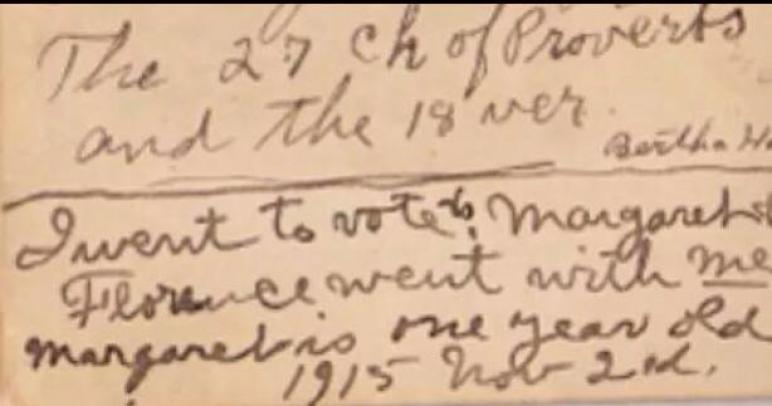 The 27 Ch of Proverbs
and the 18 ver.
Bertha
I went to vote & Margaret &
Florence went with me
Margaret is one year old
1915 Nov 2nd.